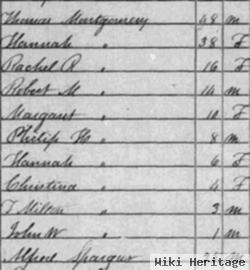 Thomas Montgomery 48 m
Hannah " 38 F
Rachel R " 16 F
Robert M " 14 m
Margaret " 10 F
Philip H " 8 m
Hannah " 6 F
Christina " 4 F
T Milton " 3 m
John W " 1 m
Alfred Spargur
Wiki Heritage